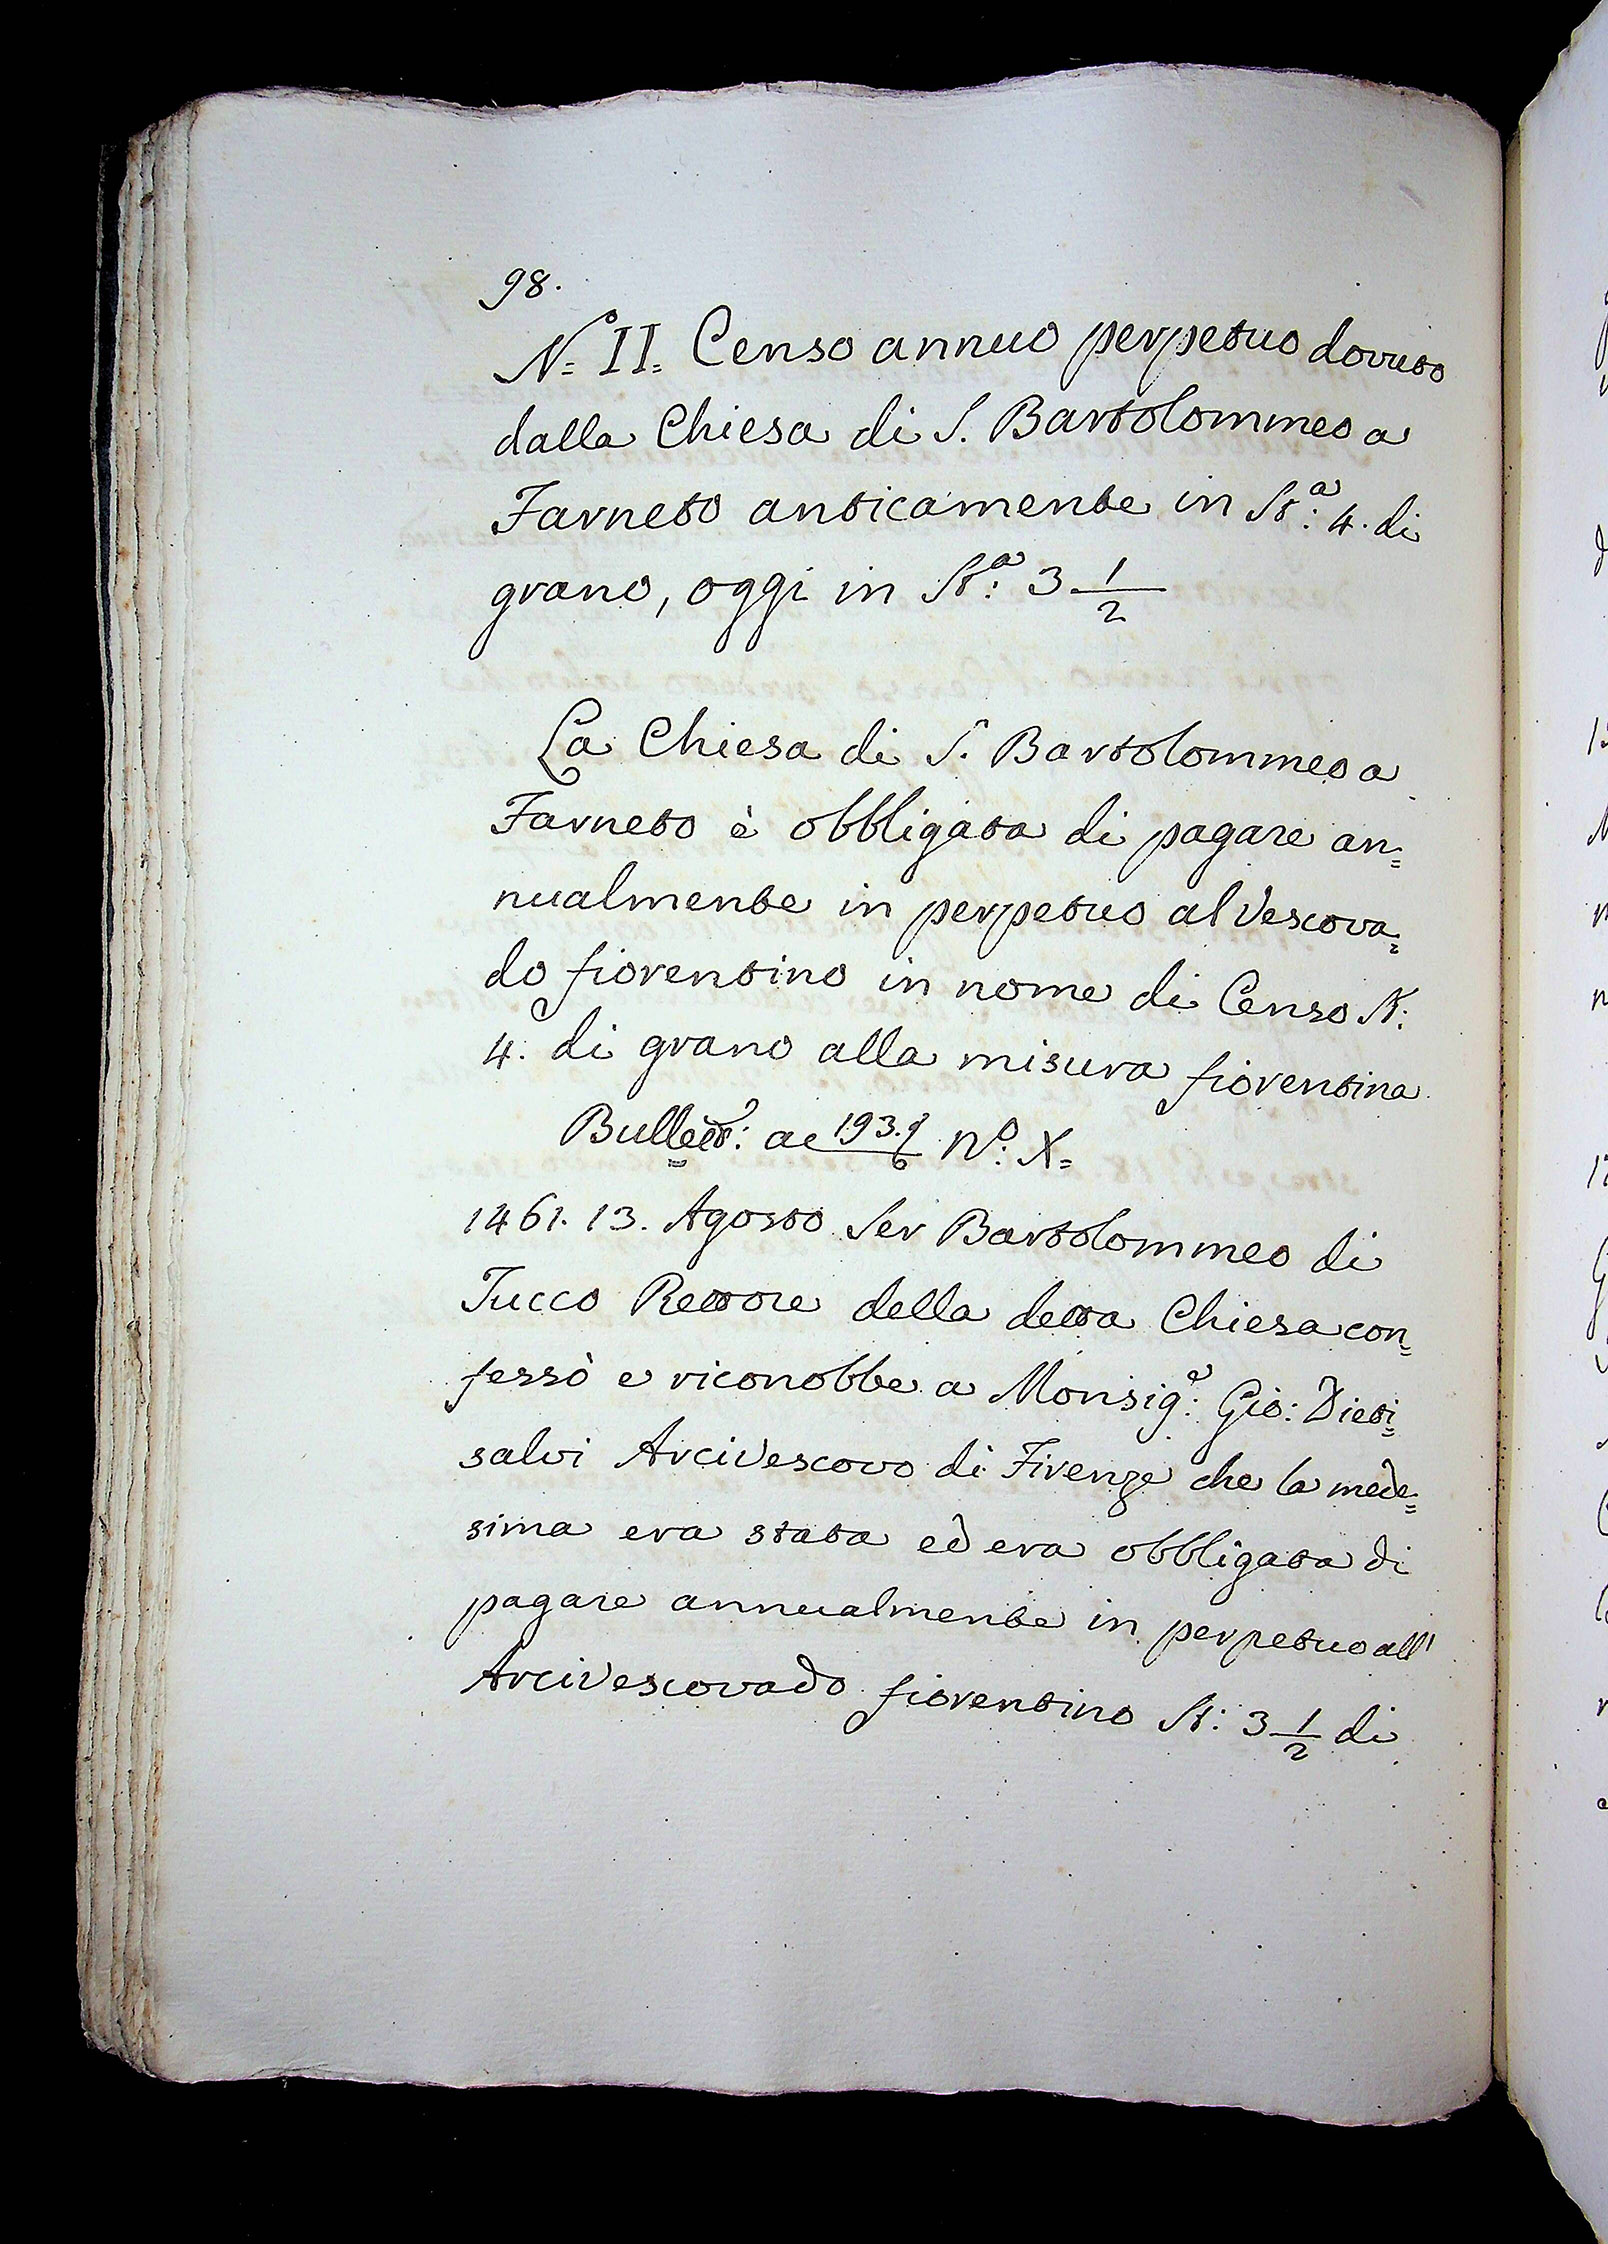 98.
N.° II. Censo annuo perpetuo dovuto
dalla Chiesa di S. Bartolommeo a
Farneto anticamente in St.ª 4. di
grano, oggi in St.ª 3 1/2
La Chiesa di S. Bartolommeo a
Farneto è obbligata di pagare an=
nualmente in perpetuo al Vescova=
do fiorentino in nome di Censo St:
4. di grano alla misura fiorentina
Bullett: a 193. N.° X=
1461. 13. Agosto Ser Bartolommeo di
Tucco Rettore della detta Chiesa con=
fessò e riconobbe a Monsig.e Gio: Dieti=
salvi Arcivescovo di Firenze che la mede=
sima era stata ed era obbligata di
pagare annualmente in perpetuo all'
Arcivescovado fiorentino St: 3 1/2 di